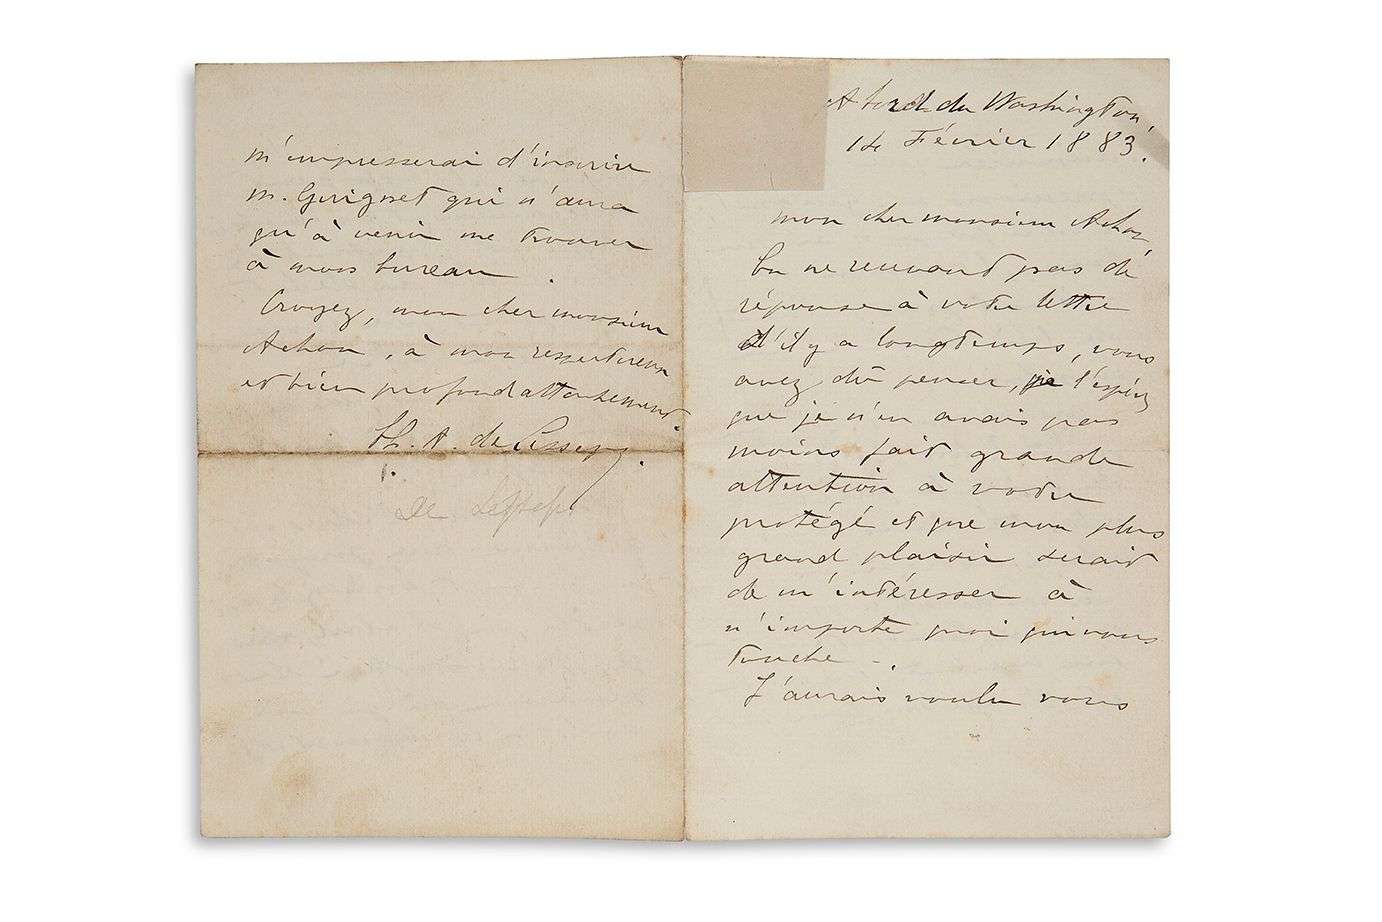 A bord du Washington,
14 Février 1883.
Mon cher monsieur Achon,
En ne recevant pas de
réponse à votre lettre
d'il y a longtemps, vous
avez dû penser, je l'espère,
que je n'en avais pas
moins fait grande
attention à votre
protégé et que mon plus
grand plaisir serait
de m'intéresser à
n'importe quoi qui vous
touche -.
J'aurais voulu vous
m'empresserai d'inscrire
M. Guignet qui n'aura
qu'à venir me trouver
à mon bureau.
Croyez, mon cher monsieur
Achon, à mon respectueux
et bien profond attachement.
Ch. A. de Lesseps.
De Lesseps